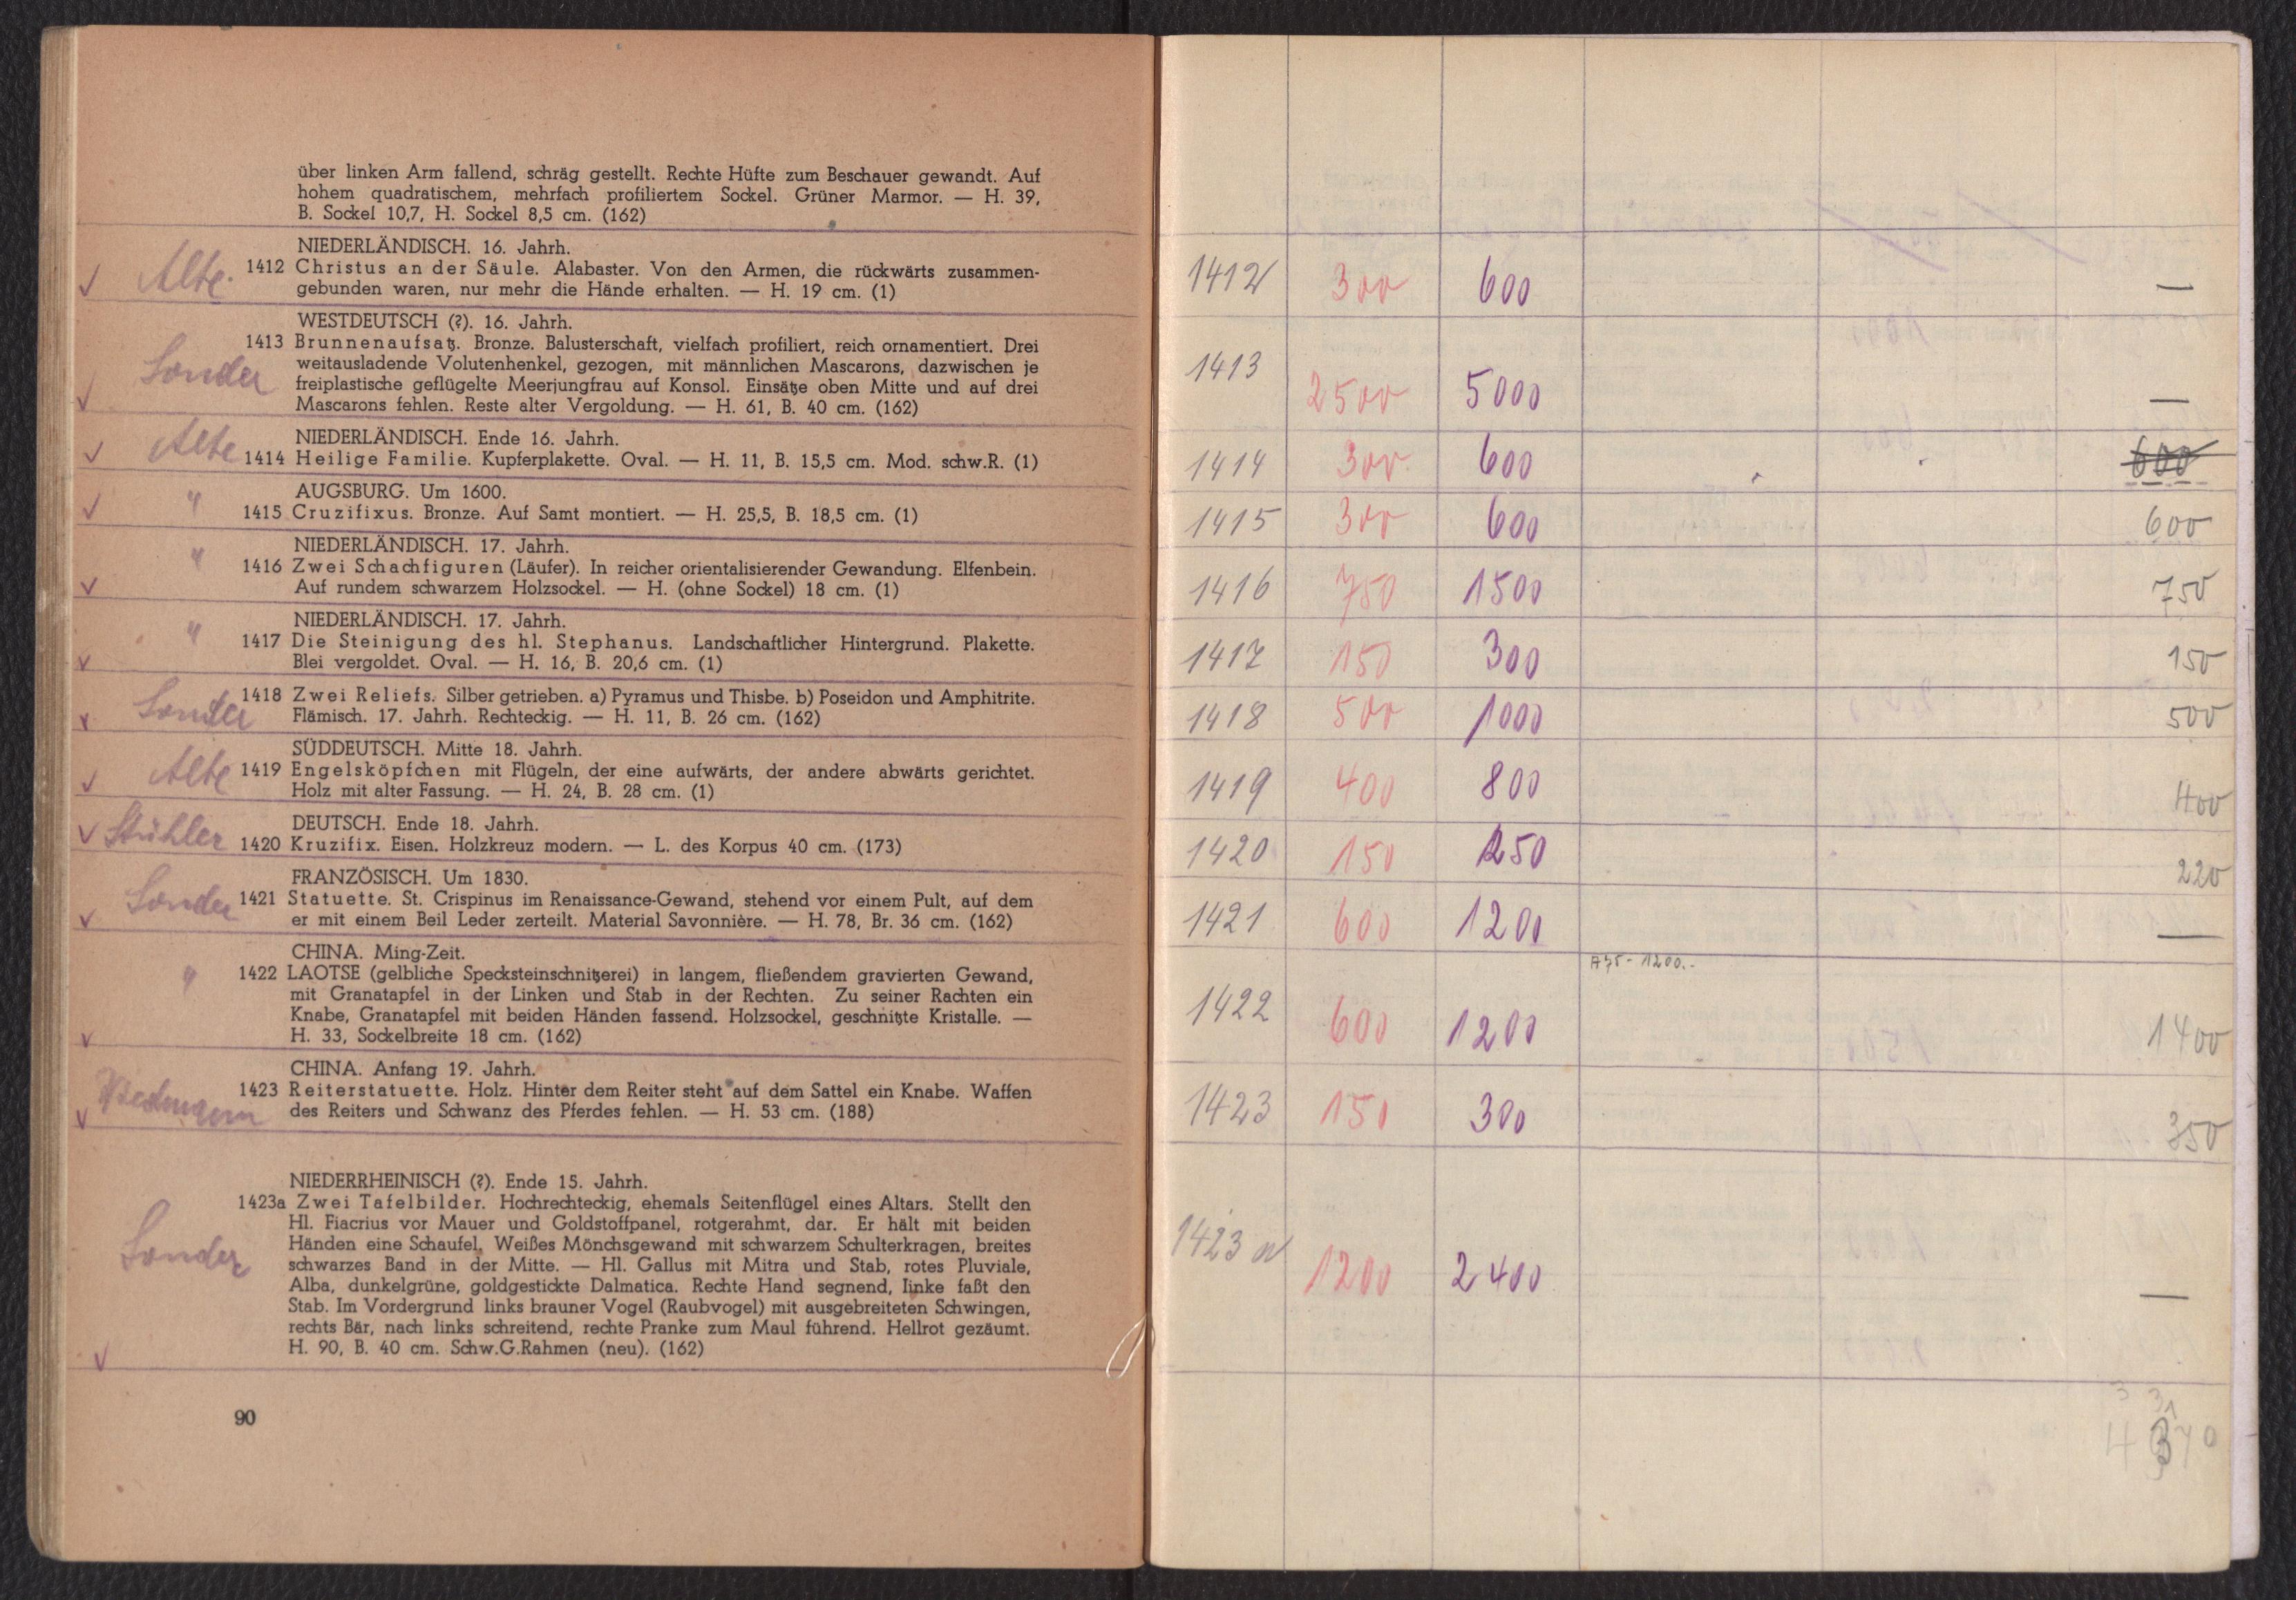 über linken Arm fallend, schräg gestellt. Rechte Hüfte zum Beschauer gewandt. Auf
hohem quadratischem, mehrfach profiliertem Sockel. Grüner Marmor. — H. 39,
B. Sockel 10,7, H. Sockel 8,5 cm. (162)
NIEDERLÄNDISCH. 16. Jahrh.
Alte. 1412 Christus an der Säule. Alabaster. Von den Armen, die rückwärts zusammen-
gebunden waren, nur mehr die Hände erhalten. — H. 19 cm. (1)
WESTDEUTSCH (?). 16. Jahrh.
1413 Brunnenaufsatz. Bronze. Balusterschaft, vielfach profiliert, reich ornamentiert. Drei
Sonder weitausladende Volutenhenkel, gezogen, mit männlichen Mascarons, dazwischen je
freiplastische geflügelte Meerjungfrau auf Konsol. Einsätze oben Mitte und auf drei
Mascarons fehlen. Reste alter Vergoldung. — H. 61, B. 40 cm. (162)
NIEDERLÄNDISCH. Ende 16. Jahrh.
Alte 1414 Heilige Familie. Kupferplakette. Oval. — H. 11, B. 15,5 cm. Mod. schw.R. (1)
" AUGSBURG. Um 1600.
1415 Cruzifixus. Bronze. Auf Samt montiert. — H. 25,5, B. 18,5 cm. (1)
" NIEDERLÄNDISCH. 17. Jahrh.
1416 Zwei Schachfiguren (Läufer). In reicher orientalisierender Gewandung. Elfenbein.
Auf rundem schwarzem Holzsockel. — H. (ohne Sockel) 18 cm. (1)
" NIEDERLÄNDISCH. 17. Jahrh.
1417 Die Steinigung des hl. Stephanus. Landschaftlicher Hintergrund. Plakette.
Blei vergoldet. Oval. — H. 16, B. 20,6 cm. (1)
Sonder 1418 Zwei Reliefs. Silber getrieben. a) Pyramus und Thisbe. b) Poseidon und Amphitrite.
Flämisch. 17. Jahrh. Rechteckig. — H. 11, B. 26 cm. (162)
SÜDDEUTSCH. Mitte 18. Jahrh.
Alte 1419 Engelsköpfchen mit Flügeln, der eine aufwärts, der andere abwärts gerichtet.
Holz mit alter Fassung. — H. 24, B. 28 cm. (1)
DEUTSCH. Ende 18. Jahrh.
Stühler 1420 Kruzifix. Eisen. Holzkreuz modern. — L. des Korpus 40 cm. (173)
FRANZÖSISCH. Um 1830.
Sonder 1421 Statuette. St. Crispinus im Renaissance-Gewand, stehend vor einem Pult, auf dem
er mit einem Beil Leder zerteilt. Material Savonnière. — H. 78, Br. 36 cm. (162)
CHINA. Ming-Zeit.
" 1422 LAOTSE (gelbliche Specksteinschnitzerei) in langem, fließendem gravierten Gewand,
mit Granatapfel in der Linken und Stab in der Rechten. Zu seiner Rachten ein
Knabe, Granatapfel mit beiden Händen fassend. Holzsockel, geschnitzte Kristalle. —
H. 33, Sockelbreite 18 cm. (162)
CHINA. Anfang 19. Jahrh.
1423 Reiterstatuette. Holz. Hinter dem Reiter steht auf dem Sattel ein Knabe. Waffen
des Reiters und Schwanz des Pferdes fehlen. — H. 53 cm. (188)
NIEDERRHEINISCH (?). Ende 15. Jahrh.
1423a Zwei Tafelbilder. Hochrechteckig, ehemals Seitenflügel eines Altars. Stellt den
Hl. Fiacrius vor Mauer und Goldstoffpanel, rotgerahmt, dar. Er hält mit beiden
Sonder Händen eine Schaufel. Weißes Mönchsgewand mit schwarzem Schulterkragen, breites
schwarzes Band in der Mitte. — Hl. Gallus mit Mitra und Stab, rotes Pluviale,
Alba, dunkelgrüne, goldgestickte Dalmatica. Rechte Hand segnend, linke faßt den
Stab. Im Vordergrund links brauner Vogel (Raubvogel) mit ausgebreiteten Schwingen,
rechts Bär, nach links schreitend, rechte Pranke zum Maul führend. Hellrot gezäumt.
H. 90, B. 40 cm. Schw.G.Rahmen (neu). (162)
90
1412 300 600 —
1413 2500 5000 —
1414 300 600 600
1415 300 600 600
1416 750 1500 750
1417 150 300 150
1418 500 1000 500
1419 400 800 400
1420 150 250 220
1421 600 1200 —
1200.-
1422 600 1200 1400
1423 150 300 350
1423 a 1200 2400 —